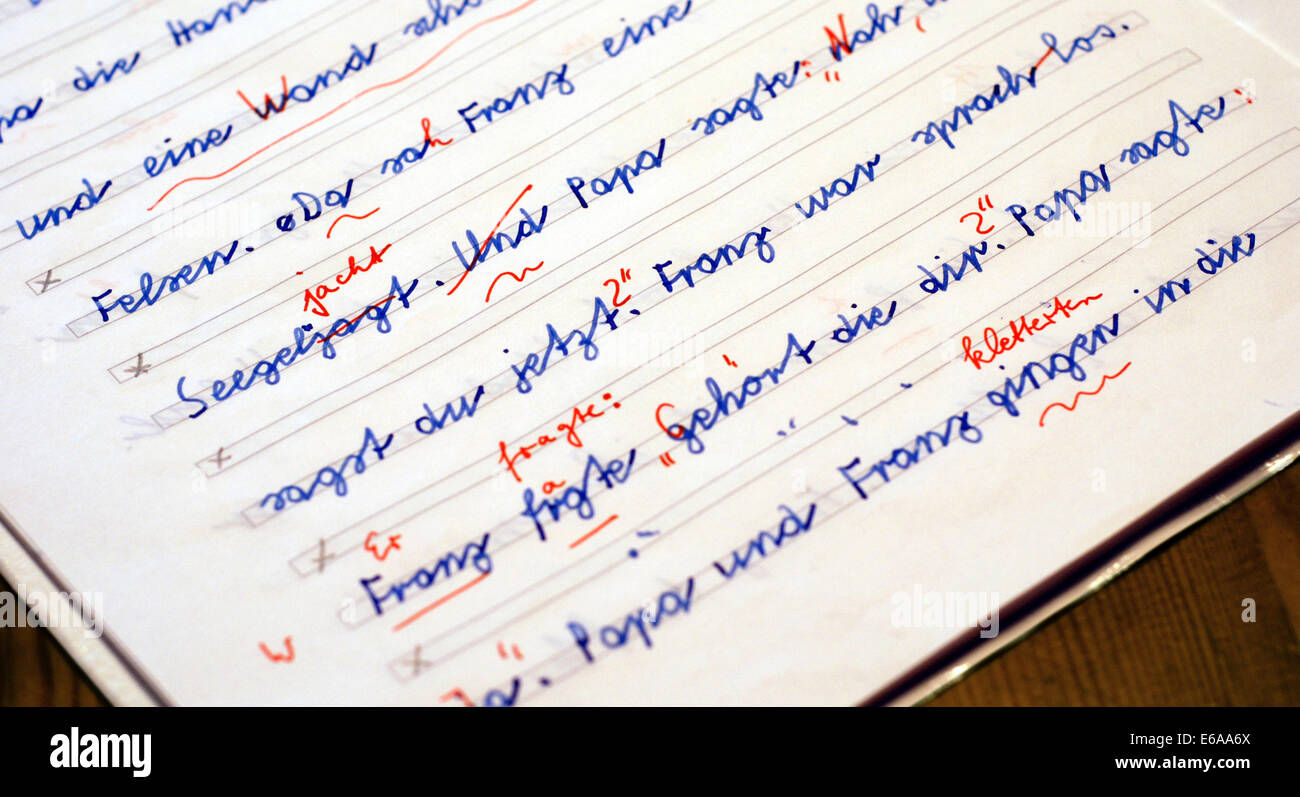 die Han
und eine Wand
Felsen. Da sah Franz eine
jacht
Seegeljagt. Und Papa sagte: "Nah,
sagst du jetzt?" Franz war sprachlos.
fragte:
Er
Franz fragte "Gehört die dir?" Papa sagte:
kletterten
W
"Ja". Papa und Franz gingen in die
alamy
Image ID: E6AA6X
www.alamy.com